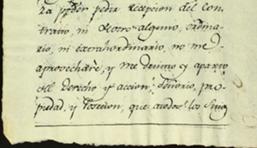 za pedir recepcion del con
trario, ni otro alguno, ordina
rio, ni extrahordinario, no me
aprovecharè, y me desisto y aparto
del derecho y accion, señorio, pro
piedad, y Posesion, que a todos los